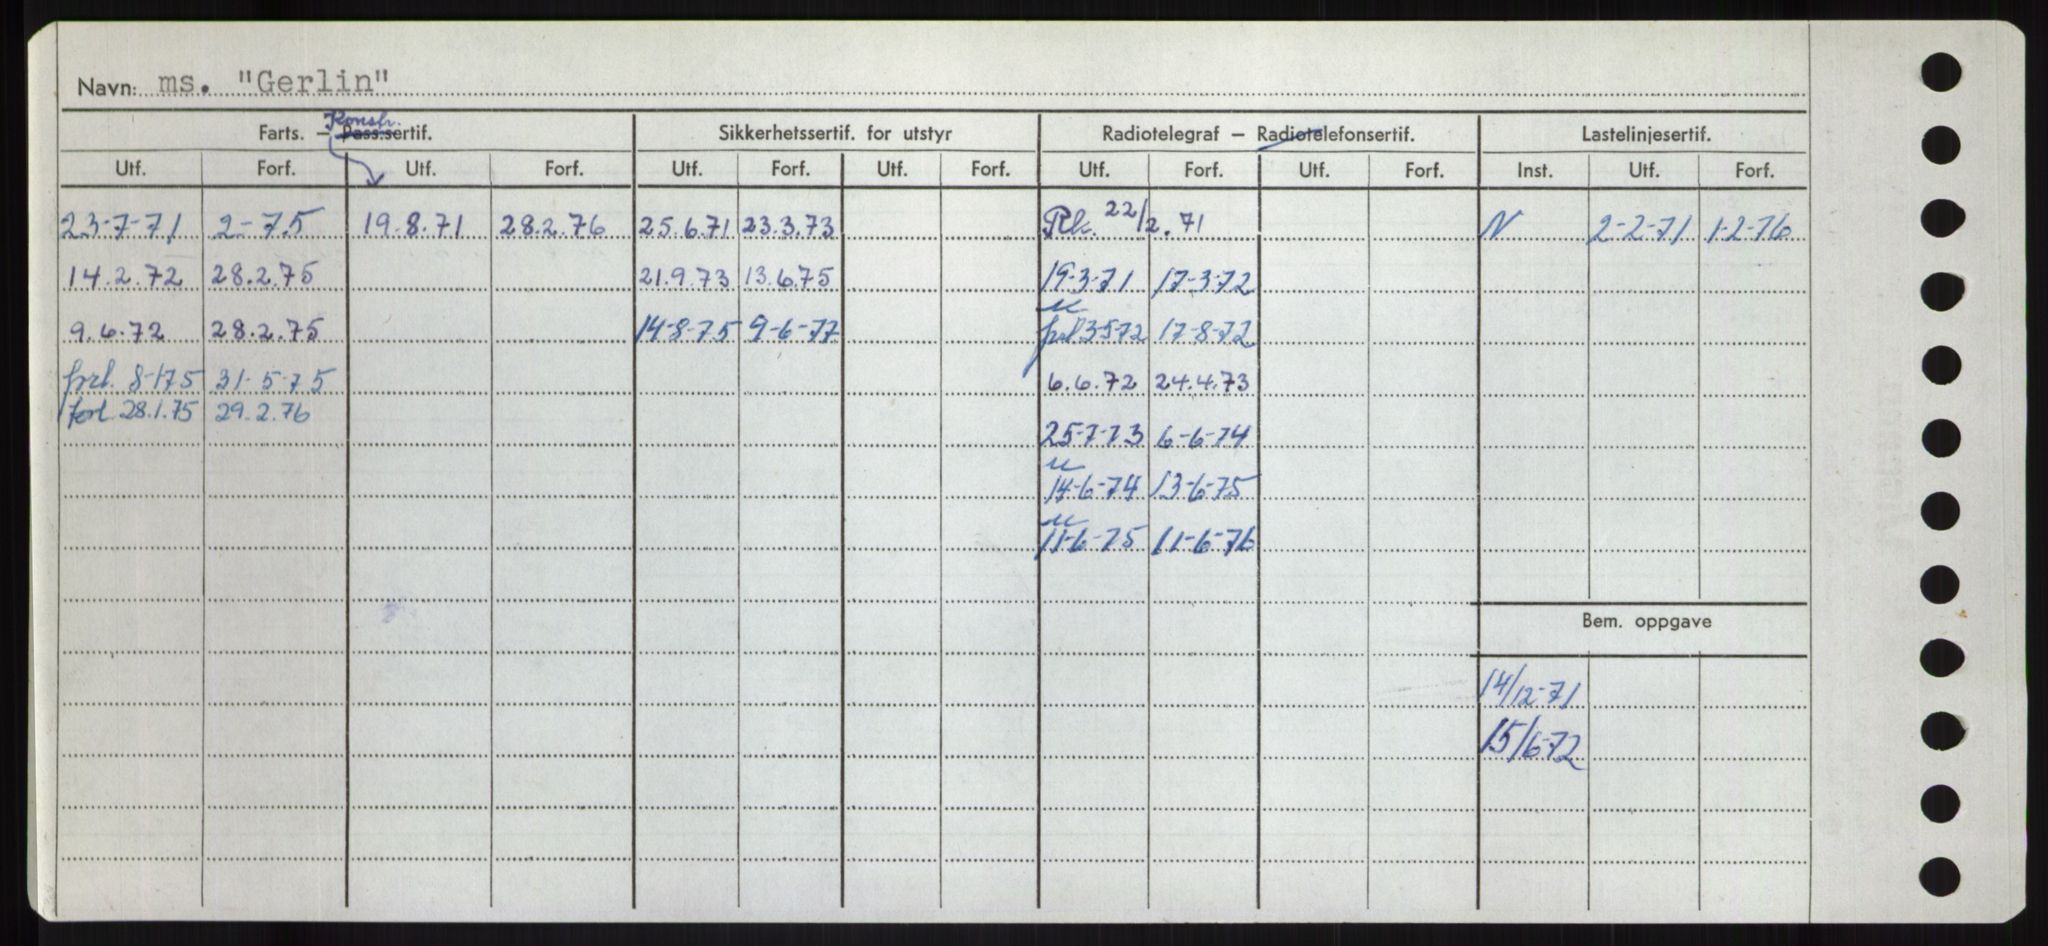 Navn: ms. "Gerlin"
Konstr.
Farts. – Pass.sertif. Sikkerhetssertif. for utstyr Radiotelegraf – Radiotelefonsertif. Lastelinjesertif.
Utf. Forf. Utf. Forf. Utf. Forf. Utf. Forf. Utf. Forf. Utf. Forf. Inst. Utf. Forf.
23-7-71 2-75 19.8.71 28.2.76 25.6.71 23.3.73 Rk. 22/2.71 N 2-2-71 1-2-76
14.2.72 28.2.75 21.9.73 13.6.75 19-3-71 17-3-72
9.6.72 28.2.75 14-8-75 9-6-77 frl 3-5-72 17-8-72
forl. 8-1-75 31-5-75 6.6.72 24.4.73
forl 28.1.75 29.2.76
25-7-73 6-6-74
14-6-74 13-6-75
11-6-75 11-6-76
Bem. oppgave
14/12-71
15/6-72